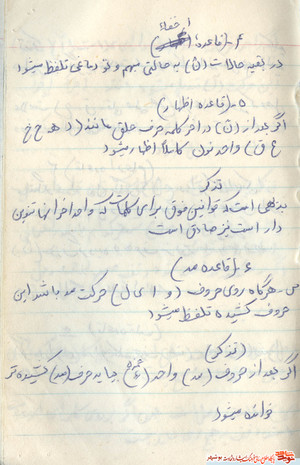 اخفاء
۴-(قاعده)
در بقیه حالات (ن) به حالتی مبهم و تو دماغی تلفظ میشود
۵-(قاعده اظهار)
اگر بعد از (ن) در آخر کلمه حرف حلقی مانند (ء ه ح خ
ع غ) واحد نون کاملاً اظهار میشود
تذکر
بدیهی است که قوانین فوق برای کلماتی که واحد آخر آنها تنوین
دار است نیز صادق است
۶-(قاعده مد)
هرگاه روی حروف (و ا ی) حرکت مد باشد این
حروف کشیده تلفظ میشود
(تذکر)
اگر بعد از حروف (مد) واحد (ء) همزه بیاید حرف (مد) کشیده تر
خوانده میشود